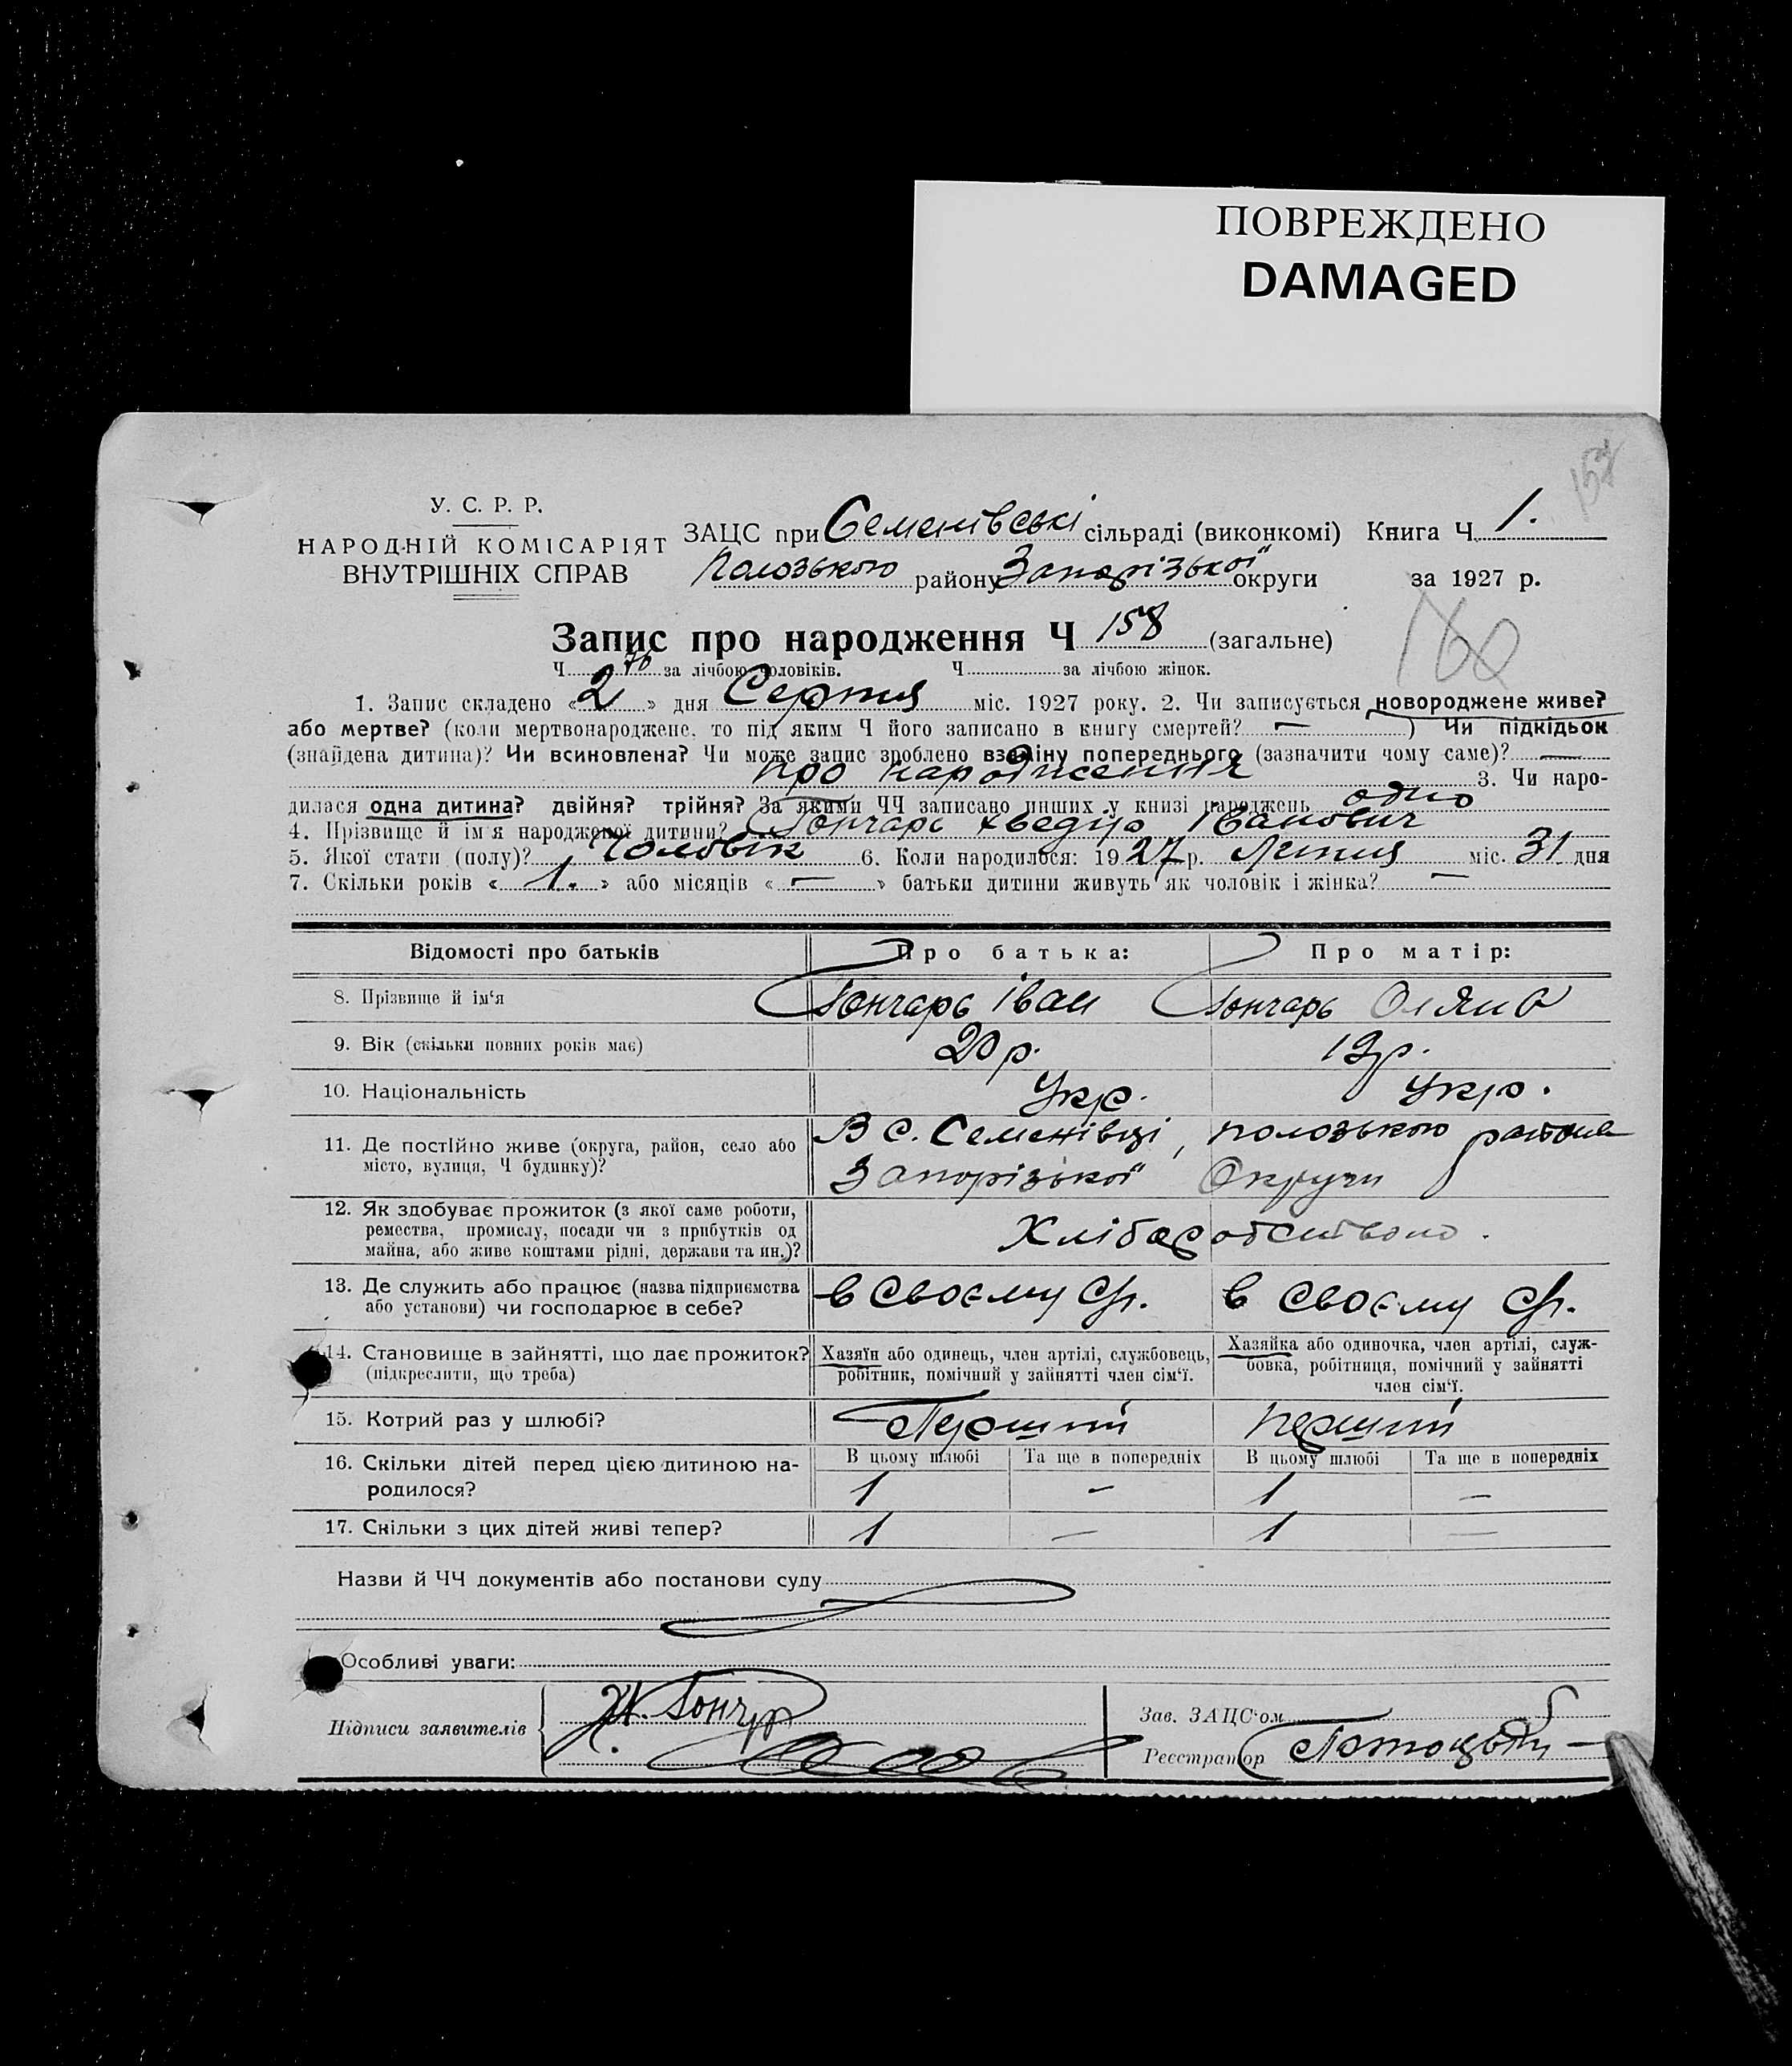 ПОВРЕЖДЕНО
DAMAGED
158
У. С. Р. Р.
НАРОДНІЙ КОМІСАРІЯТ
ВНУТРІШНІХ СПРАВ
ЗАЦС при Семенівські сільраді (виконкомі) Книга Ч. 1.
Полозького району Запорізької округи за 1927 р.
Запис про народження Ч 158 (загальне)
160
Ч 76 за лічбою чоловіків. Ч за лічбою жінок.
1. Запис складено « 2 » дня Серпня міс. 1927 року. 2. Чи записується новороджене живе?
або мертве? (коли мертвонароджене, то під яким Ч його записано в книгу смертей? — ) Чи підкідьок
(знайдена дитина)? Чи всиновлена? Чи може запис зроблено взаміну попереднього (зазначити чому саме)? —
про народження 3. Чи наро-
дилася одна дитина? двійня? трійня? За якими ЧЧ записано инших у книзі народжень одно
4. Прізвище й ім'я народженої дитини? Гончарь Хведір Іванович
5. Якої стати (полу)? Чоловік 6. Коли народилося: 1927 р. Липня міс. 31 дня
7. Скільки років « 1. » або місяців « — » батьки дитини живуть як чоловік і жінка? —
Відомості про батьків Про батька: Про матір:
8. Прізвище й ім'я Гончарь Іван Гончарь Оляна
9. Вік (скільки повних років має) 20 р. 19 р.
10. Національність Укр. Укр.
11. Де постійно живе (округа, район, село або
місто, вулиця, Ч будинку)?
В с. Семенівці, Полозького района
Запорізької Округи
12. Як здобуває прожиток (з якої саме роботи,
ремества, промислу, посади чи з прибутків од
майна, або живе коштами рідні, держави та ин.)?
Хлібаробством.
13. Де служить або працює (назва підприємства
або установи) чи господарює в себе?
в своєму гр. в своєму гр.
14. Становище в зайнятті, що дає прожиток?
(підкреслити, що треба)
Хазяїн або одинець, член артілі, службовець,
робітник, помічний у зайнятті член сім'ї.
Хазяйка або одиночка, член артілі, служ-
бовка, робітниця, помічний у зайнятті
член сім'ї.
15. Котрий раз у шлюбі? Перший перший
16. Скільки дітей перед цією дитиною на-
родилося?
В цьому шлюбі Та ще в попередніх В цьому шлюбі Та ще в попередніх
1 — 1 —
17. Скільки з цих дітей живі тепер? 1 — 1 —
Назви й ЧЧ документів або постанови суду
Особливі уваги:
Підписи заявителів
Гончар
Зав. ЗАЦС'ом
Реєстратор Потоцький